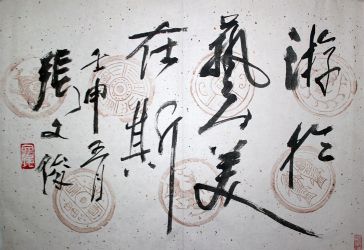 游於
藝天美
在斯
壬申五月
張文俊